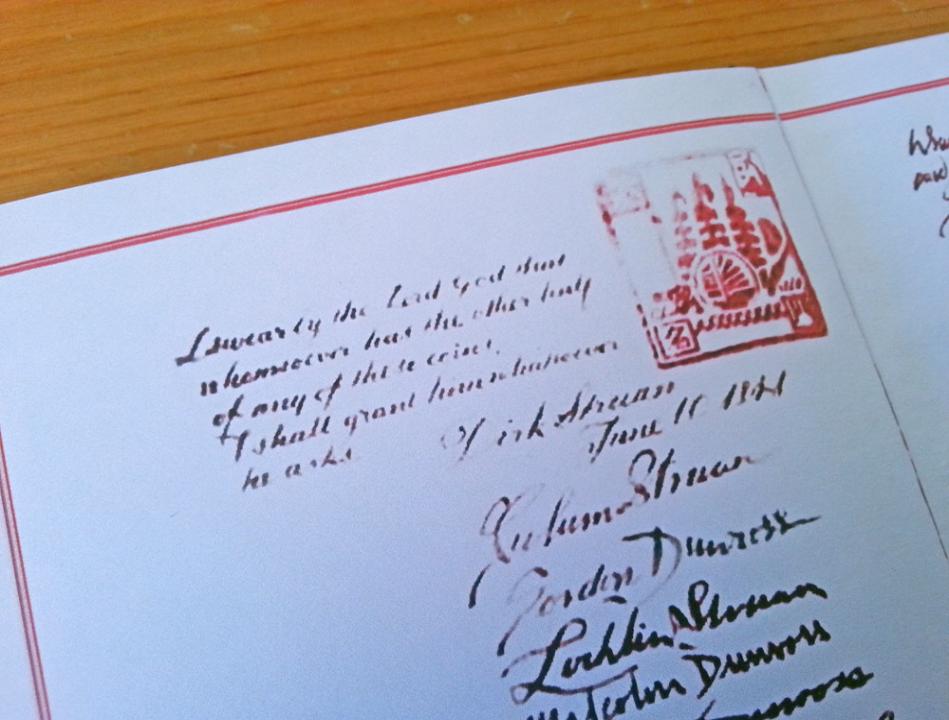 I swear by the Lord God that
whomsoever has the other half
of any of these coins,
I shall grant him whatsoever
he asks
Dirk Struan
June 10 1841
Culum Struan
Gordon Dunross
Lochlin Struan
Malcolm Dunross
Dunross
名